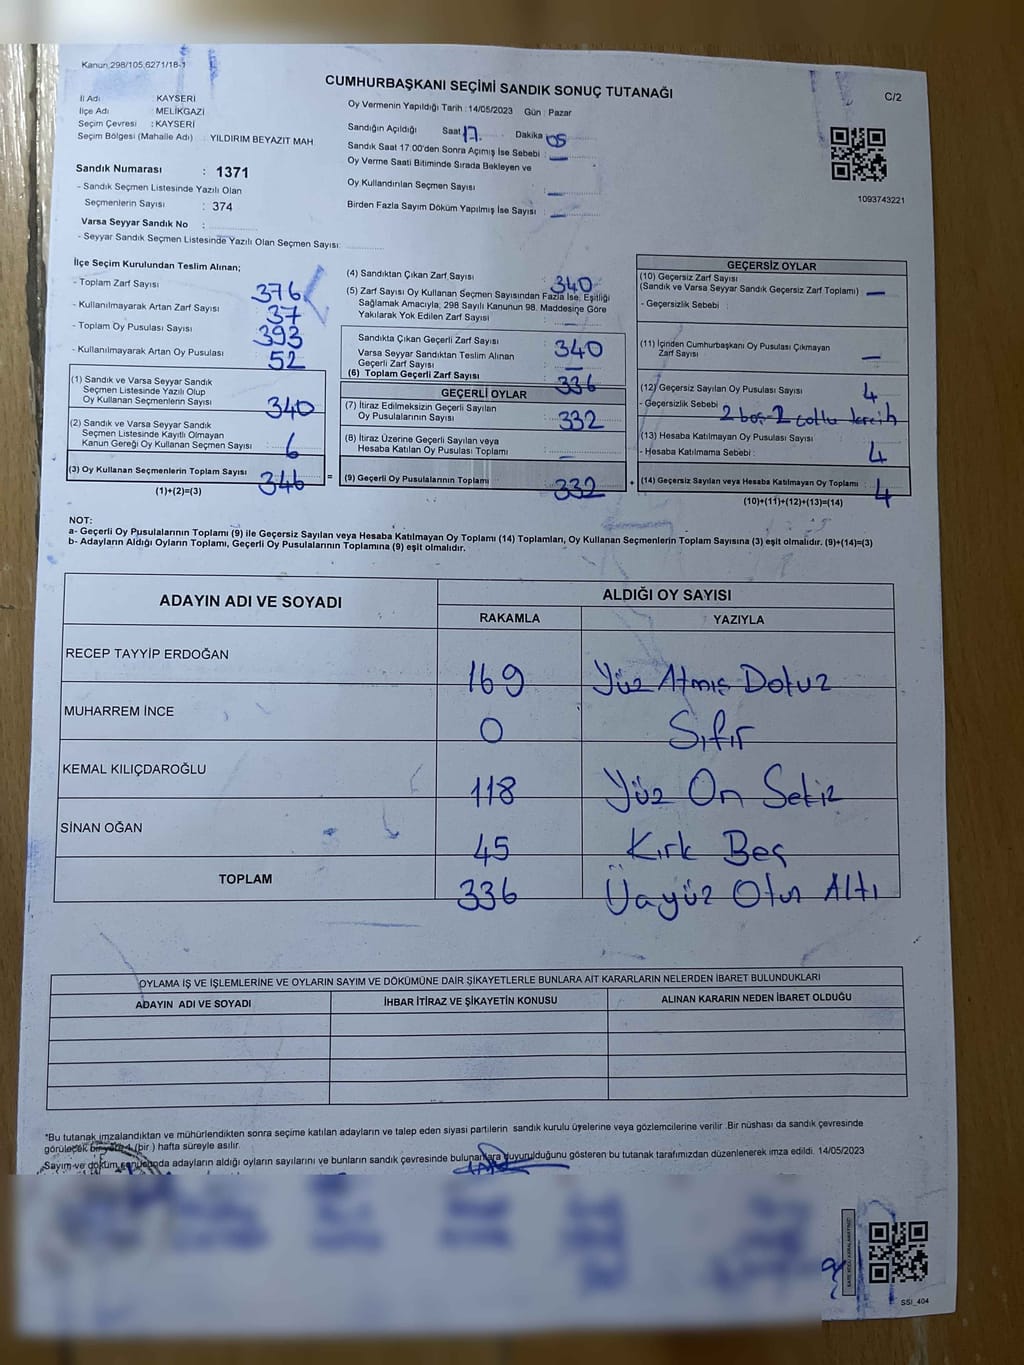 Kanun 298/105,6271/18-1
CUMHURBAŞKANI SEÇİMİ SANDIK SONUÇ TUTANAĞI
C/2
İl Adı : KAYSERİ
İlçe Adı : MELİKGAZİ
Seçim Çevresi : KAYSERİ
Seçim Bölgesi (Mahalle Adı) : YILDIRIM BEYAZIT MAH
Sandık Numarası : 1371
- Sandık Seçmen Listesinde Yazılı Olan
Seçmenlerin Sayısı : 374
Varsa Seyyar Sandık No :
- Seyyar Sandık Seçmen Listesinde Yazılı Olan Seçmen Sayısı:
Oy Vermenin Yapıldığı Tarih : 14/05/2023 Gün : Pazar
Sandığın Açıldığı Saat 17 Dakika 05
Sandık Saat 17:00'den Sonra Açımış İse Sebebi : —
Oy Verme Saati Bitiminde Sırada Bekleyen ve
Oy Kullandırılan Seçmen Sayısı : —
Birden Fazla Sayım Döküm Yapılmış İse Sayısı : —
1093743221
İlçe Seçim Kurulundan Teslim Alınan;
- Toplam Zarf Sayısı 376
- Kullanılmayarak Artan Zarf Sayısı 37
- Toplam Oy Pusulası Sayısı 393
- Kullanılmayarak Artan Oy Pusulası 52
(1) Sandık ve Varsa Seyyar Sandık
Seçmen Listesinde Yazılı Olup
Oy Kullanan Seçmenlerin Sayısı 340
(2) Sandık ve Varsa Seyyar Sandık
Seçmen Listesinde Kayıtlı Olmayan
Kanun Gereği Oy Kullanan Seçmen Sayısı 6
(3) Oy Kullanan Seçmenlerin Toplam Sayısı 346
(1)+(2)=(3)
(4) Sandıktan Çıkan Zarf Sayısı : 340
(5) Zarf Sayısı Oy Kullanan Seçmen Sayısından Fazla İse, Eşitliği
Sağlamak Amacıyla, 298 Sayılı Kanunun 98. Maddesine Göre
Yakılarak Yok Edilen Zarf Sayısı :
Sandıkta Çıkan Geçerli Zarf Sayısı 340
Varsa Seyyar Sandıktan Teslim Alınan
Geçerli Zarf Sayısı : —
(6) Toplam Geçerli Zarf Sayısı 336
GEÇERLİ OYLAR
(7) İtiraz Edilmeksizin Geçerli Sayılan
Oy Pusulalarının Sayısı : 332
(8) İtiraz Üzerine Geçerli Sayılan veya
Hesaba Katılan Oy Pusulası Toplamı : —
= (9) Geçerli Oy Pusulalarının Toplamı 332 +
GEÇERSİZ OYLAR
(10) Geçersiz Zarf Sayısı
(Sandık ve Varsa Seyyar Sandık Geçersiz Zarf Toplamı) —
- Geçersizlik Sebebi :
(11) İçinden Cumhurbaşkanı Oy Pusulası Çıkmayan
Zarf Sayısı —
(12) Geçersiz Sayılan Oy Pusulası Sayısı 4
- Geçersizlik Sebebi : 2 boş-2 tercih
(13) Hesaba Katılmayan Oy Pusulası Sayısı
- Hesaba Katılmama Sebebi : 4
(14) Geçersiz Sayılan veya Hesaba Katılmayan Oy Toplamı : 4
(10)+(11)+(12)+(13)=(14)
NOT:
a- Geçerli Oy Pusulalarının Toplamı (9) ile Geçersiz Sayılan veya Hesaba Katılmayan Oy Toplamı (14) Toplamları, Oy Kullanan Seçmenlerin Toplam Sayısına (3) eşit olmalıdır. (9)+(14)=(3)
b- Adayların Aldığı Oyların Toplamı, Geçerli Oy Pusulalarının Toplamına (9) eşit olmalıdır.
ADAYIN ADI VE SOYADI ALDIĞI OY SAYISI
RAKAMLA YAZIYLA
RECEP TAYYİP ERDOĞAN 169 Yüz Atmış Dokuz
MUHARREM İNCE 0 Sıfır
KEMAL KILIÇDAROĞLU 118 Yüz On Sekiz
SİNAN OĞAN 45 Kırk Beş
TOPLAM 336 Üçyüz Otuz Altı
OYLAMA İŞ VE İŞLEMLERİNE VE OYLARIN SAYIM VE DÖKÜMÜNE DAİR ŞİKAYETLERLE BUNLARA AİT KARARLARIN NELERDEN İBARET BULUNDUKLARI
ADAYIN ADI VE SOYADI İHBAR İTİRAZ VE ŞİKAYETİN KONUSU ALINAN KARARIN NEDEN İBARET OLDUĞU
*Bu tutanak imzalandıktan ve mühürlendikten sonra seçime katılan adayların ve talep eden siyasi partilerin sandık kurulu üyelerine veya gözlemcilerine verilir .Bir nüshası da sandık çevresinde
görülecek bir yere 1 (bir ) hafta süreyle asılır.
Sayım ve döküm sonucunda adayların aldığı oyların sayılarını ve bunların sandık çevresinde bulunanlara duyurulduğunu gösteren bu tutanak tarafımızdan düzenlenerek imza edildi. 14/05/2023
SSI_404